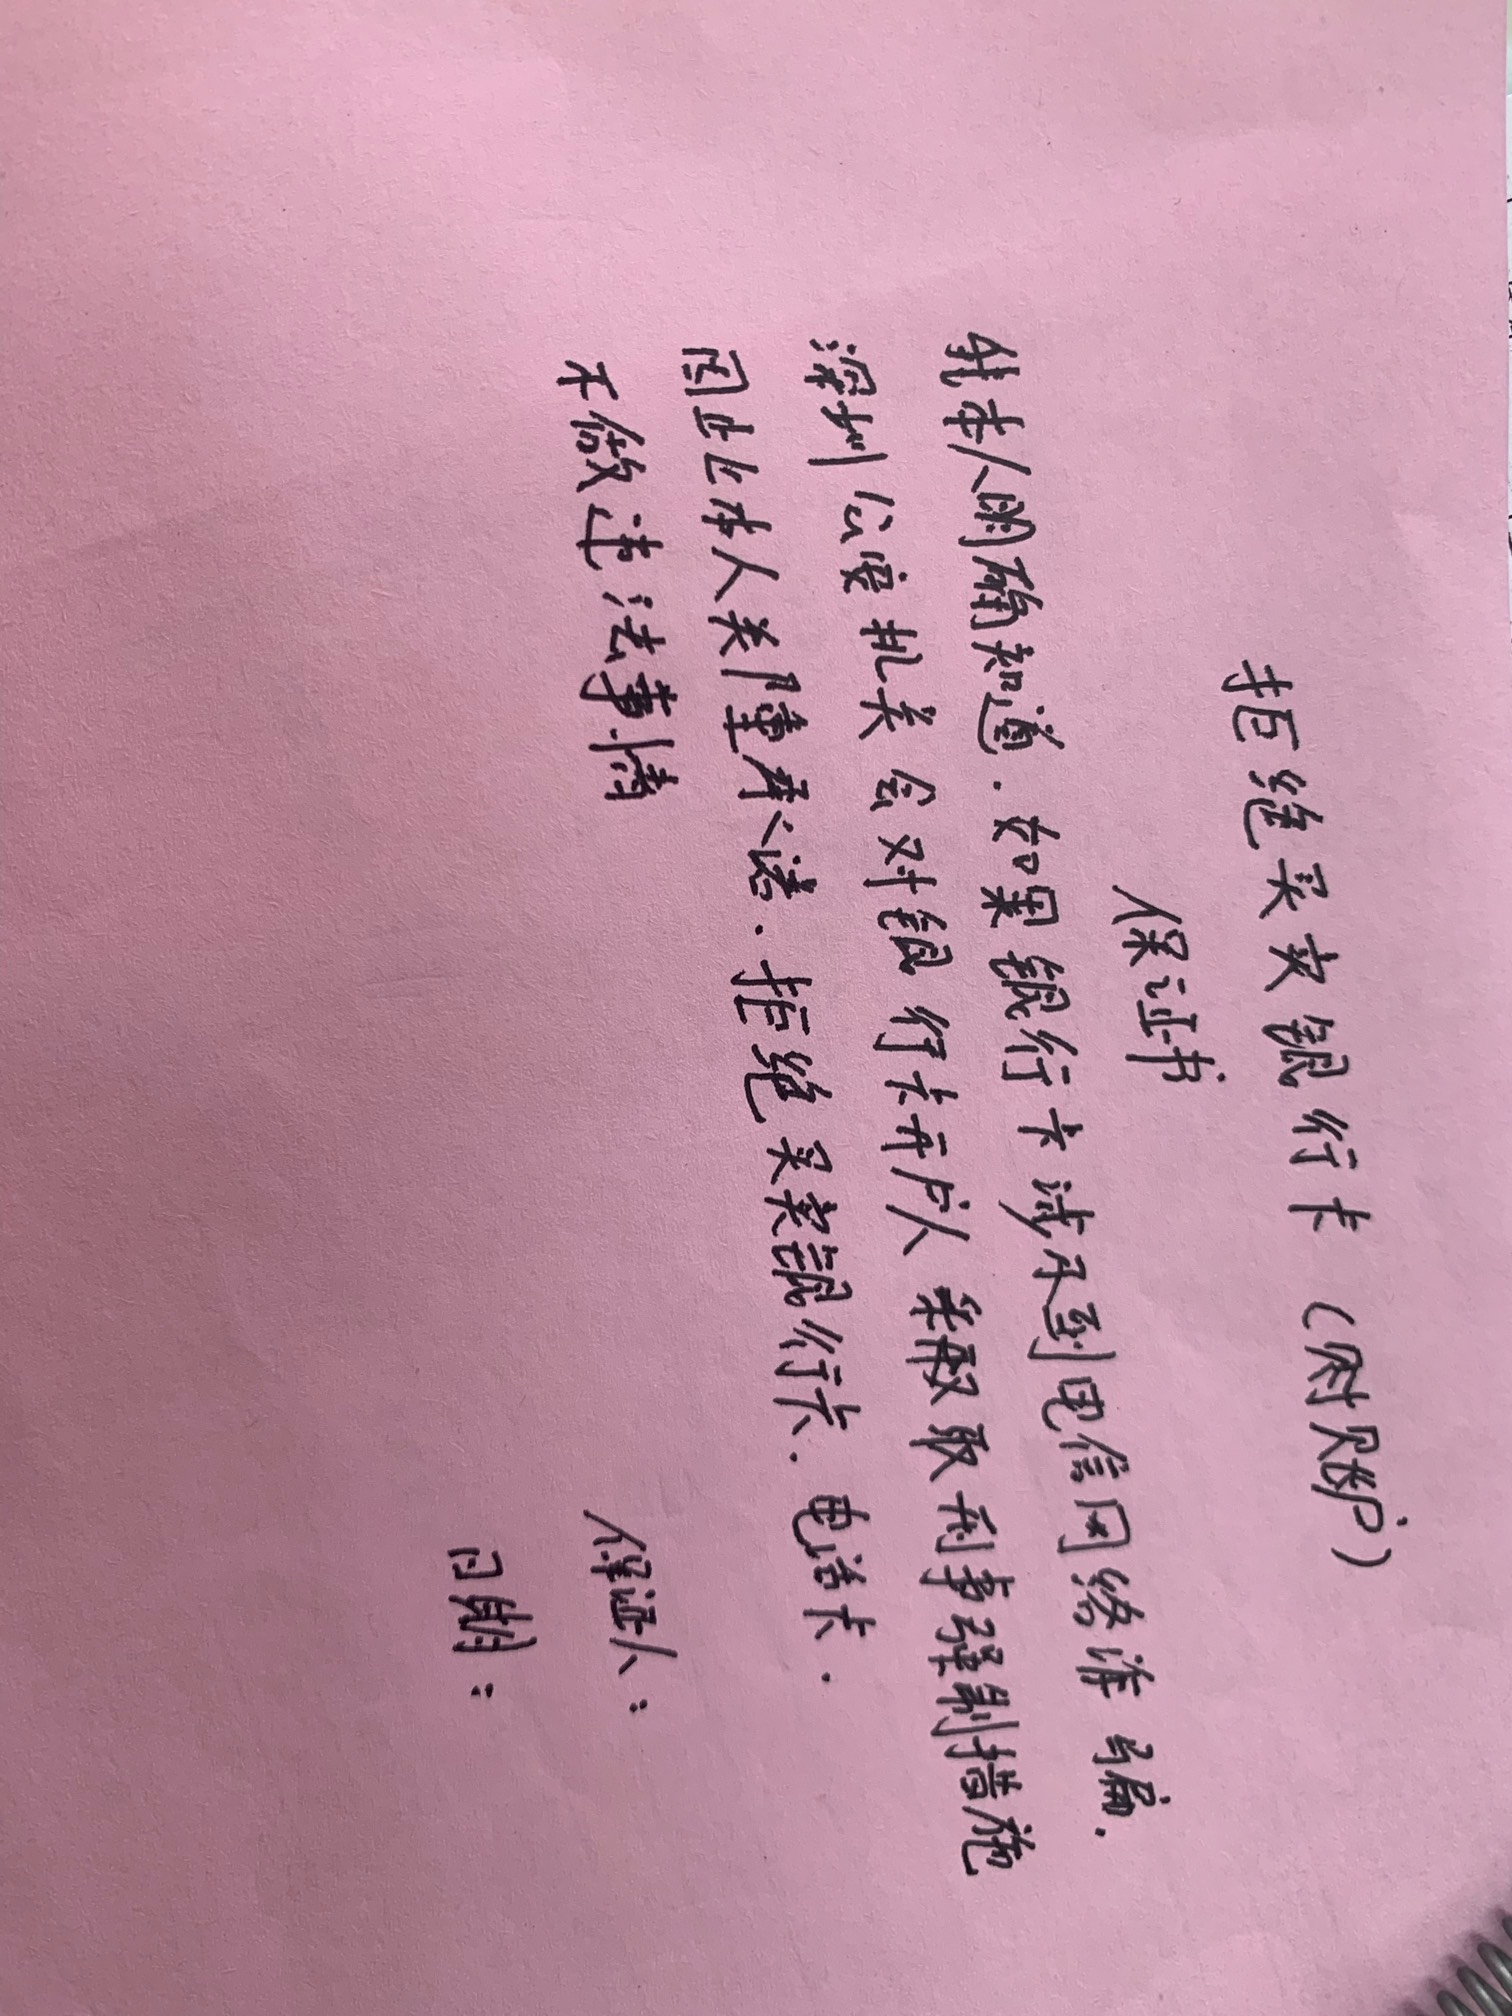 拒绝买卖银行卡（附账户）
保证书
我本人明确知道.如果银行卡涉及到电信网络诈骗.
深圳公安机关会对银行卡开户人采取刑事强制措施
因此本人郑重承诺.拒绝买卖银行卡.电话卡.
不做违法事情
保证人：
日期：